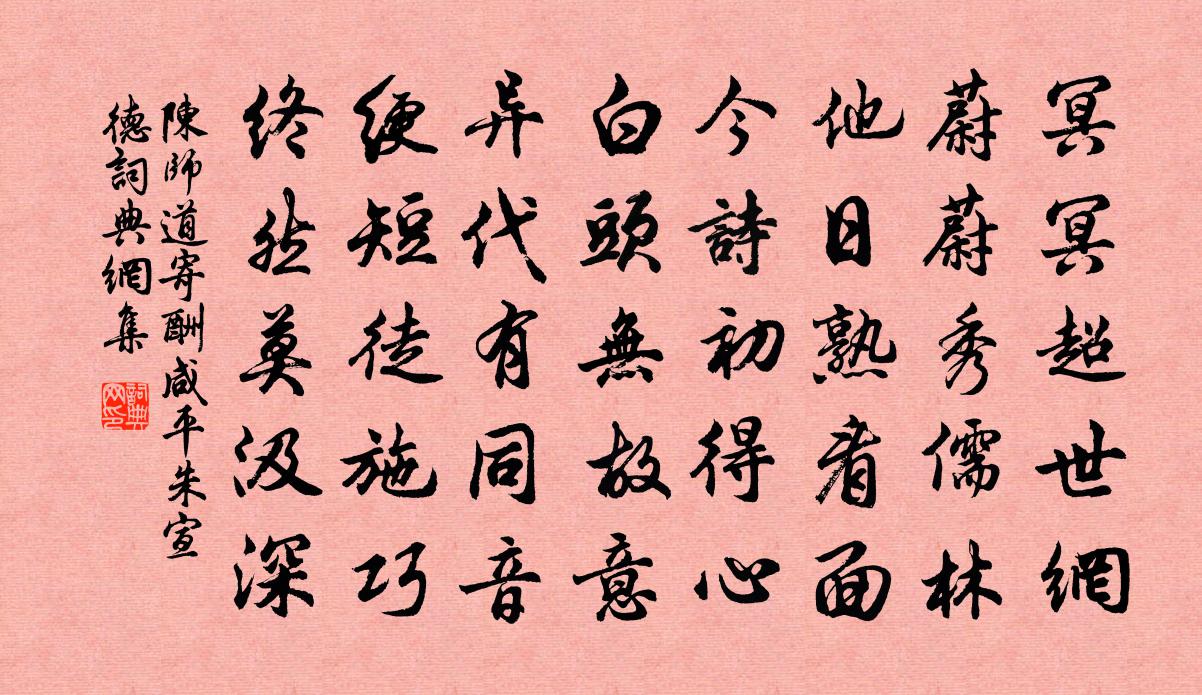 冥冥超世網
蔚蔚秀儒林
他日熟看面
今詩初得心
白頭無故意
异代有同音
綆短徒施巧
終然莫汲深
陳師道寄酬咸平朱宣
德詞典網集
詞典
网印